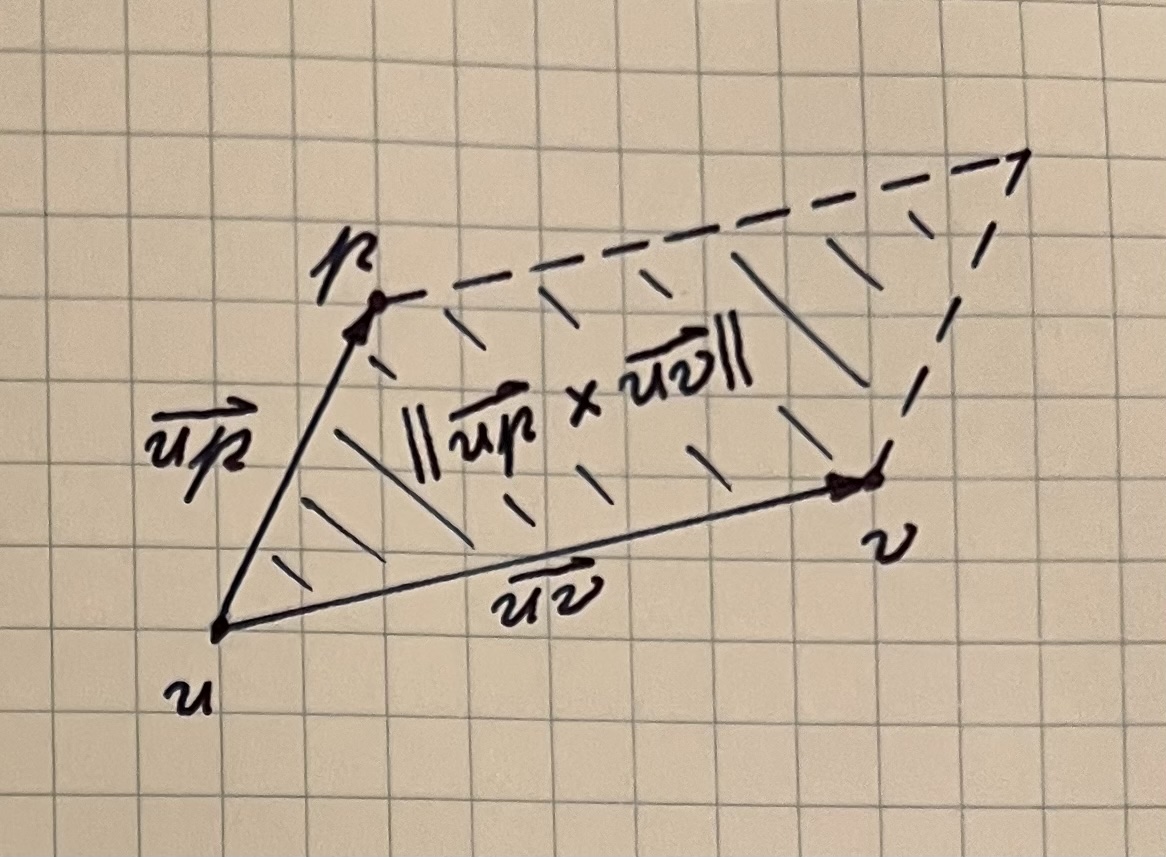 p
→up
‖→up × →uv‖
→uv
v
u